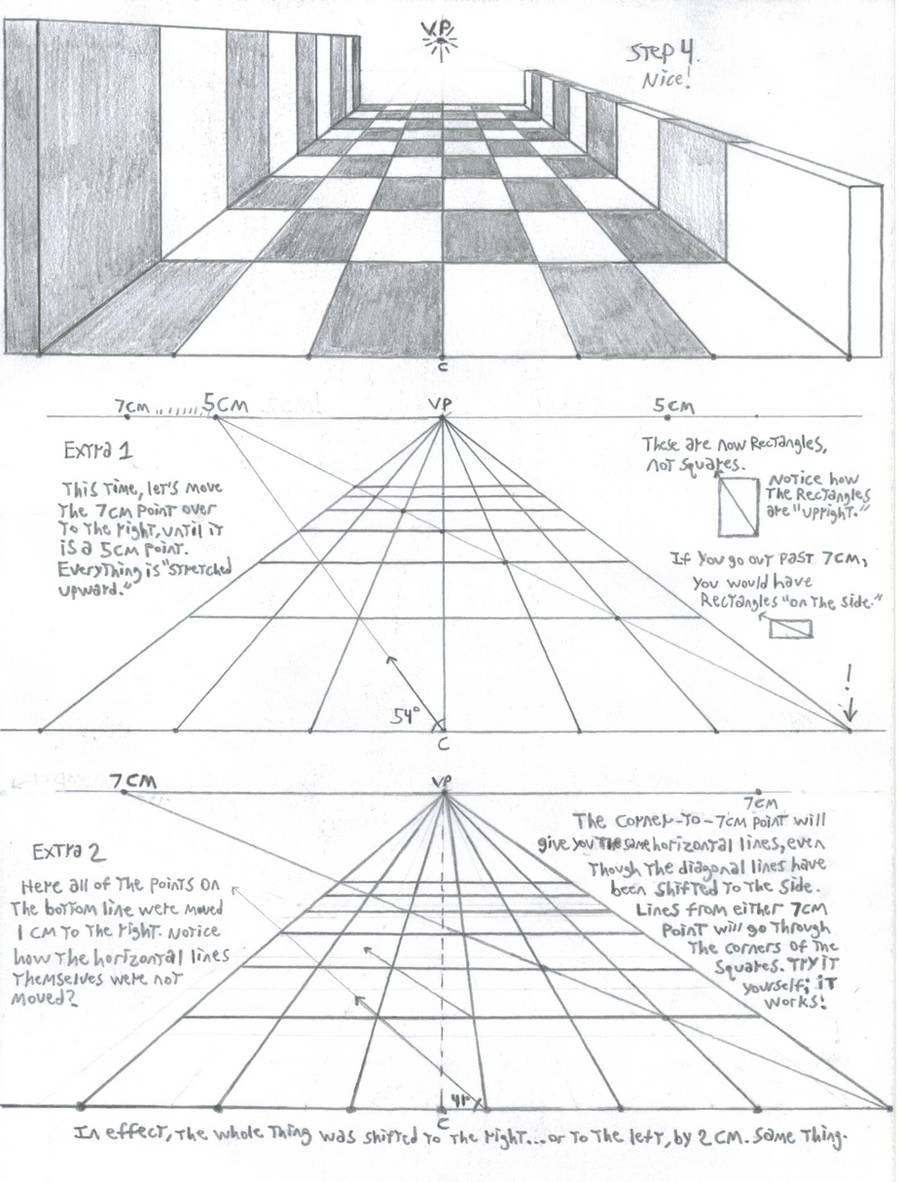 V.P.
STEP 4.
Nice!
C
7CM 5CM VP 5CM
Extra 1
This time, let's move
the 7CM point over
to the right, until it
is a 5CM point.
Everything is "stretched
upward."
These are now Rectangles,
not squares.
Notice how
the Rectangles
are "upright."
If you go out past 7CM,
you would have
Rectangles "on the side."
!
54°
C
7CM VP 7CM
Extra 2
Here all of the points on
the bottom line were moved
1 CM to the right. Notice
how the horizontal lines
themselves were not
moved?
The corner-to-7CM point will
give you the same horizontal lines, even
though the diagonal lines have
been shifted to the side.
Lines from either 7CM
point will go through
the corners of the
squares. Try it
yourself; it
works!
41°
C
In effect, the whole thing was shifted to the right...or to the left, by 2 CM. Same thing.